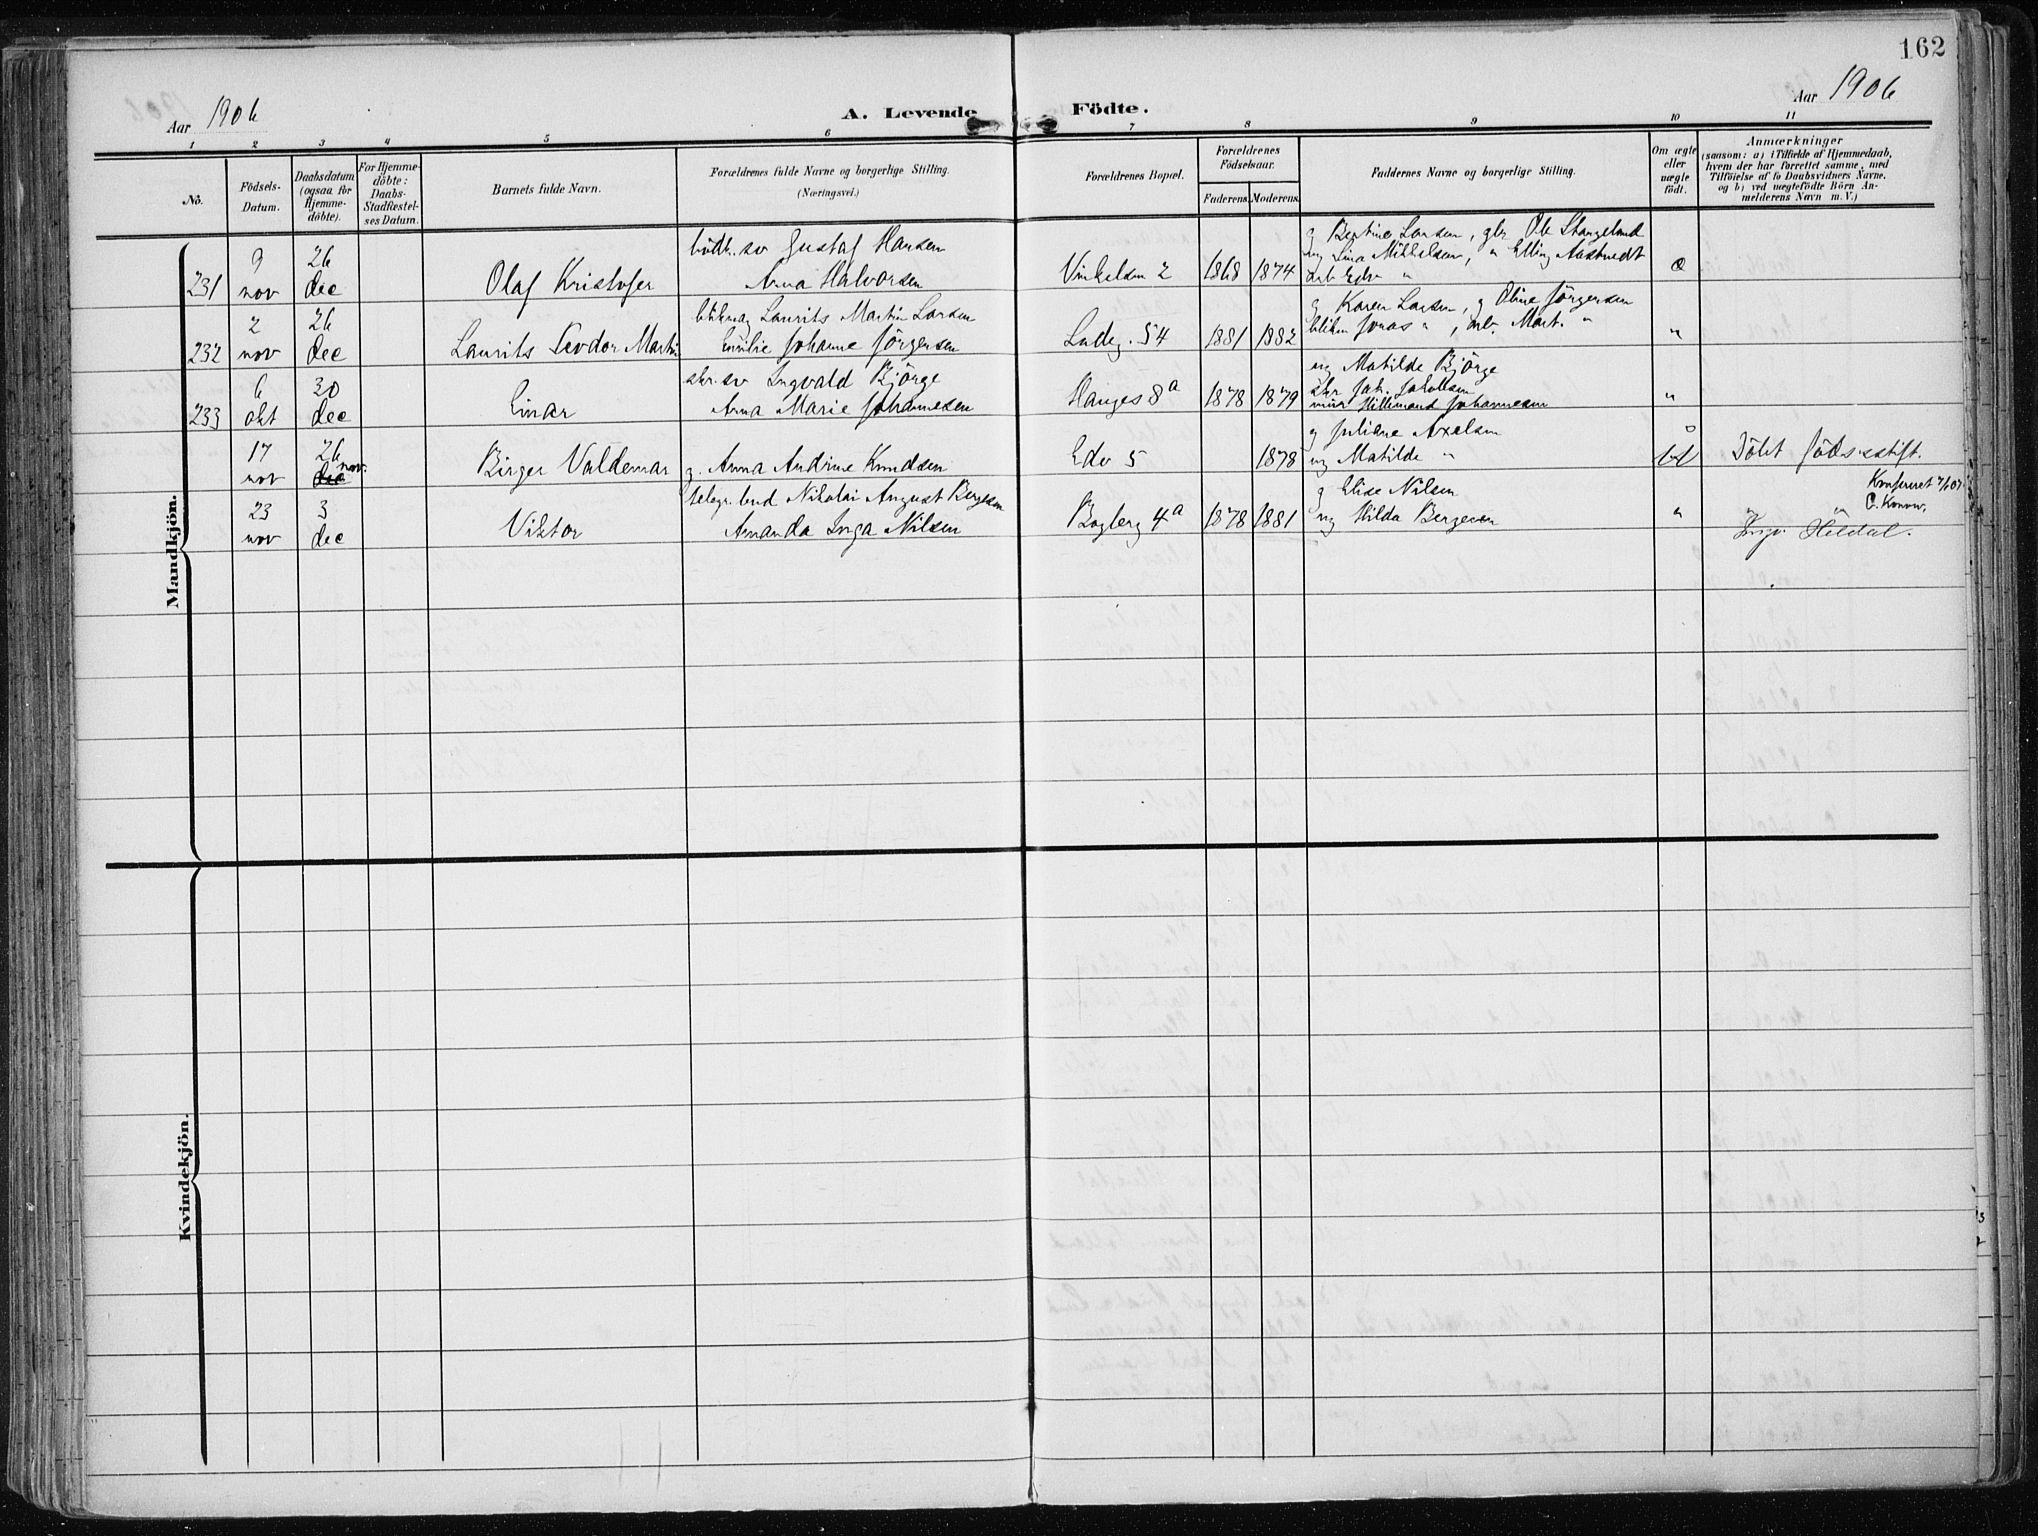 162
Aar 1906
A. Levende Födte.
Aar 1906
1 2 3 4 5 6 7 8 9 10 11
No.
Födsels-Datum.
Daabsdatum (ogsaa for Hjemme-döbte).
For Hjemme-döbte: Daabs-Stadfæstel-ses Datum.
Barnets fulde Navn.
Forældrenes fulde Navne og borgerlige Stilling.
(Næringsvei.)
Forældrenes Bopæl.
Forældrenes Födselsaar.
Faderens. Moderens.
Faddernes Navne og borgerlige Stilling.
Om ægte eller uægte født.
Anmærkninger
(saasom: a) i Tilfælde af Hjemmedaab,
hvem der har forrettet samme, med
Tilföielse af to Daabsvidners Navne,
og b) ved uægtefödte Börn An-
melderens Navn m. V.)
Mandkjön.
g Bertine Larsen, gbr Ole Stangeland
9 26 Gustaf Hansen ug Lina Mikkelsen, " Elling Aastvedt
231 nov dec Olaf Kristofer Anna Halvorsen Vinkelsm 2 1868 1874 æ
2 26 Laurits Martin Larsen g Karen Larsen, g Oline Jörgensen
232 nov dec Laurits Teodor Martin Emilie Johanne Jörgensen Ladeg. 54 1881 1882 Jonas ", Mart. " "
6 30 skr. sv Ingvald Björge ug Matilde Björge
skr Joh. Jakobsen
233 okt dec Einar Anna Marie Johannesen Hauges 8a 1878 1879 Johannesen "
17 26 g Juliane Axelsen
nov dec nov. Birger Valdemar g. Anna Andrine Knudsen Edv 5 1878 ug Matilde " U Döbt föds.stift.
Konfereret 7/1 07
C. Konow.
23 3 telegr.bud Nikolai August Bergesen g Elise Nilsen
nov dec Viktor Amanda Inga Nilsen Bogberg 4a 1878 1881 ug Hilda Bergesen " " "
Ingv. Heldal.
Kvindekjön.